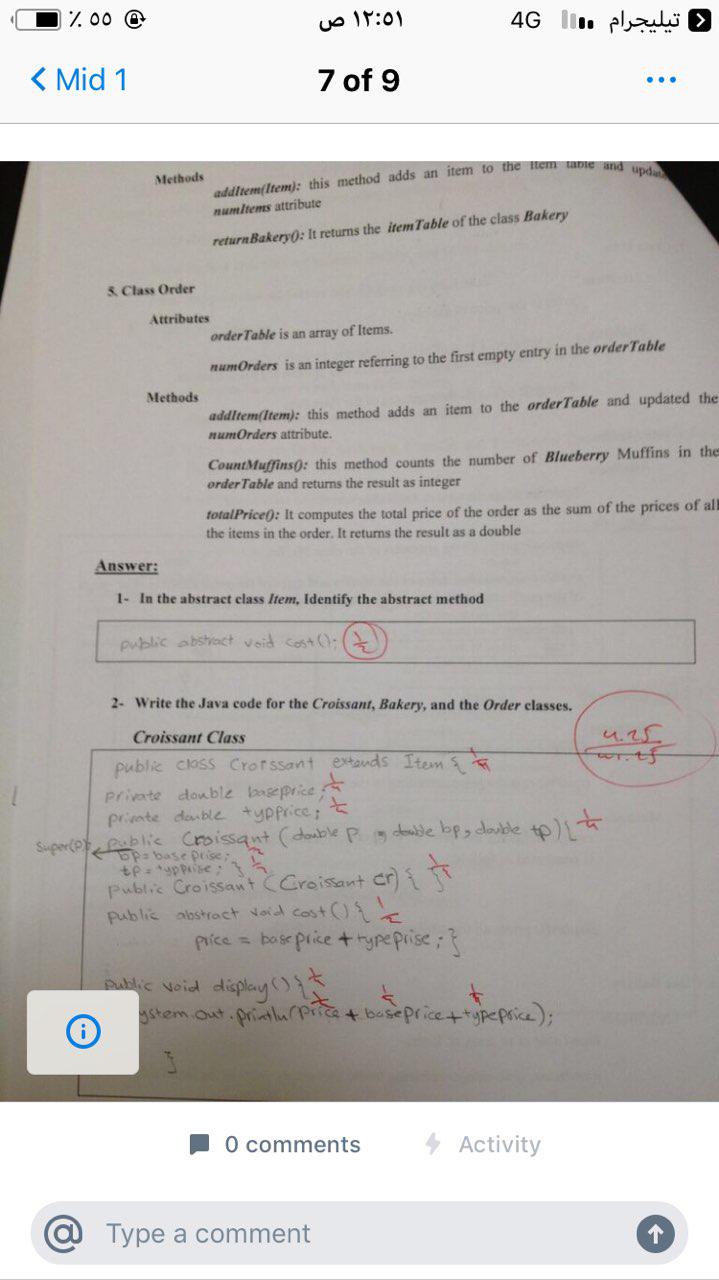 ٪ ٥٥
١٢:٥١ ص
4G تيليجرام
Mid 1
7 of 9
Methods
addItem(Item): this method adds an item to the Item table and
numItems attribute
returnBakery(): It returns the itemTable of the class Bakery
5. Class Order
Attributes
orderTable is an array of Items.
numOrders is an integer referring to the first empty entry in the orderTable
Methods
addItem(Item): this method adds an item to the orderTable and updated the
numOrders attribute.
CountMuffins(): this method counts the number of Blueberry Muffins in the
orderTable and returns the result as integer
totalPrice(): It computes the total price of the order as the sum of the prices of all
the items in the order. It returns the result as a double
Answer:
1- In the abstract class Item, Identify the abstract method
public abstract void cost(); 1/2
2- Write the Java code for the Croissant, Bakery, and the Order classes.
4.25
Croissant Class
public class Croissant extends Item { 1/4
private double baseprice; 1/4
private double typprice; 1/4
public Croissant (double p , double bp, double tp){ 1/4
Super(p)
bp = baseprise;
tp = typprise; }
public Croissant (Croissant cr) { }
public abstract void cost() { 1/2
price = baseprice + typeprise; }
public void display() {
ystem.out.println(price + baseprice + typeprice);
}
0 comments
Activity
@ Type a comment